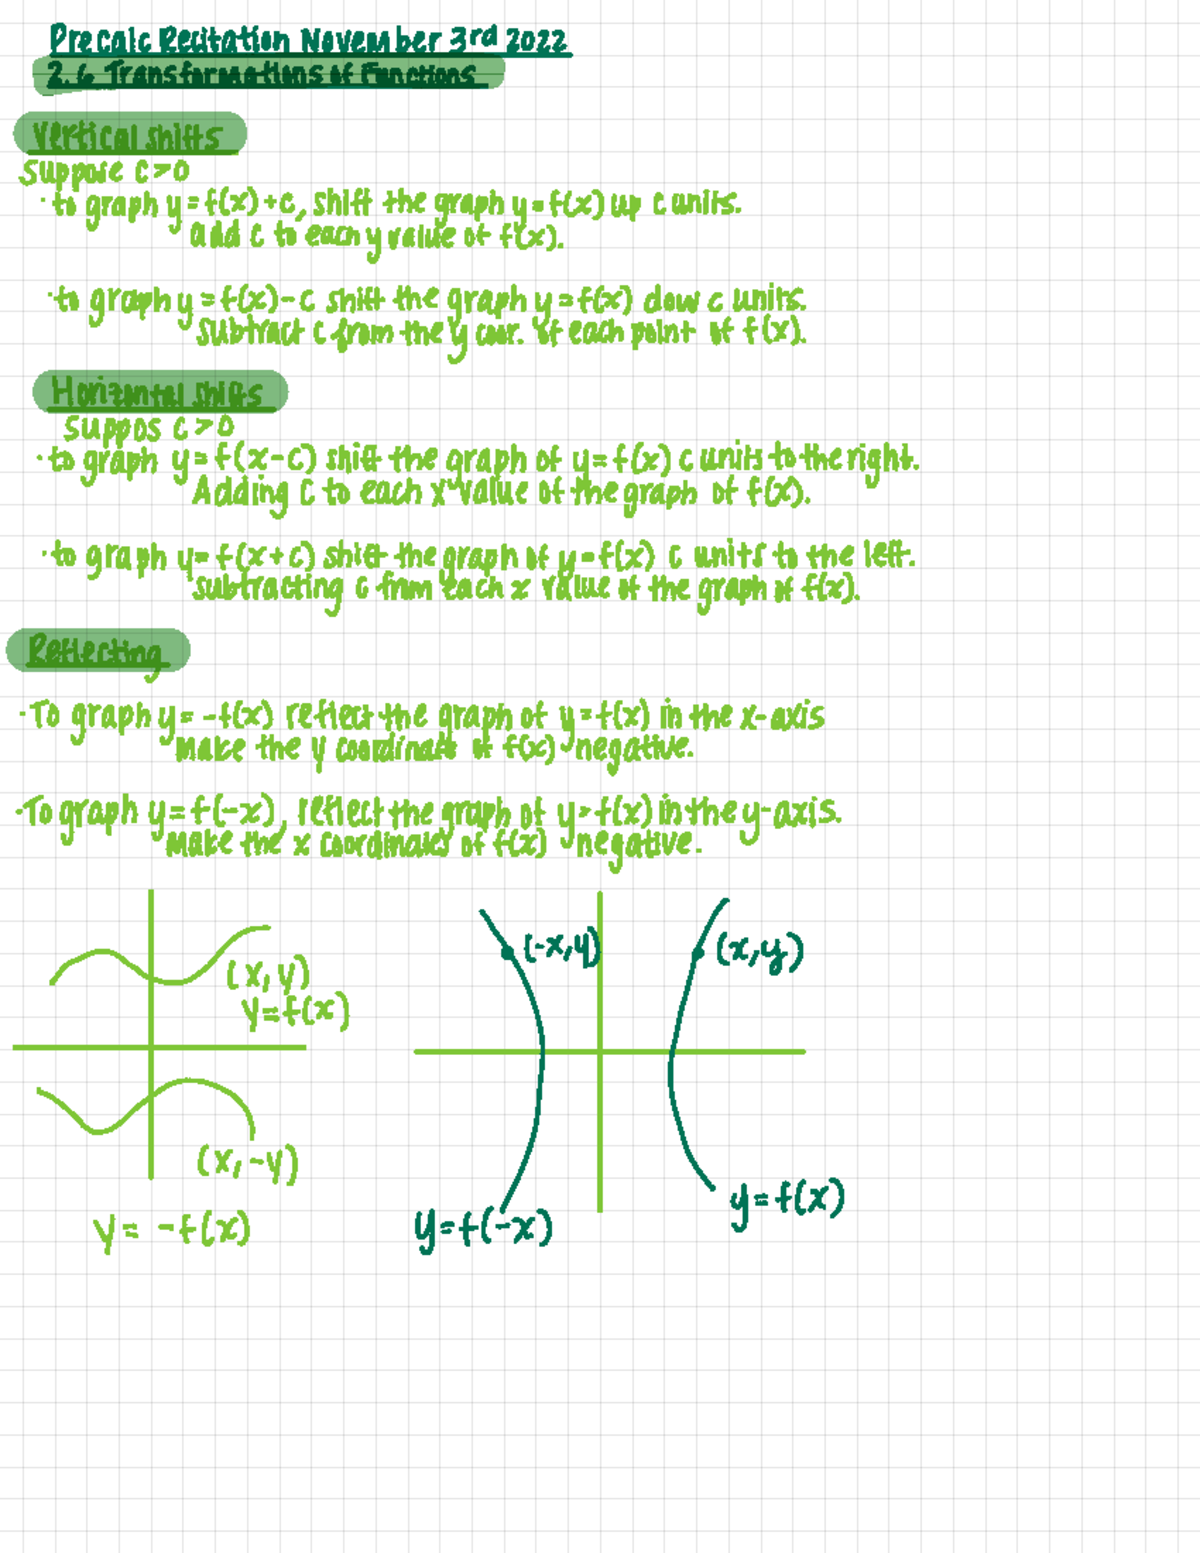 Precalc Recitation November 3rd 2022
2.6 Transformations of Functions
Vertical shifts
Suppose c>0
·to graph y=f(x)+c, shift the graph y=f(x) up c units.
add c to each y value of f(x).
·to graph y=f(x)-c shift the graph y=f(x) dow c units.
subtract c from the y coor. of each point of f(x).
Horizontal shifts
Suppos c>0
·to graph y=f(x-c) shift the graph of y=f(x) c units to the right.
Adding c to each x value of the graph of f(x).
·to graph y=f(x+c) shift the graph of y=f(x) c units to the left.
subtracting c from each x value of the graph of f(x).
Reflecting
·To graph y=-f(x) reflect the graph of y=f(x) in the x-axis
make the y coordinate of f(x) negative.
·To graph y=f(-x), reflect the graph of y=f(x) in the y-axis.
Make the x coordinates of f(x) negative.
(x,y)
y=f(x)
(x,-y)
y= -f(x)
(-x,y)
(x,y)
y=f(-x)
y=f(x)